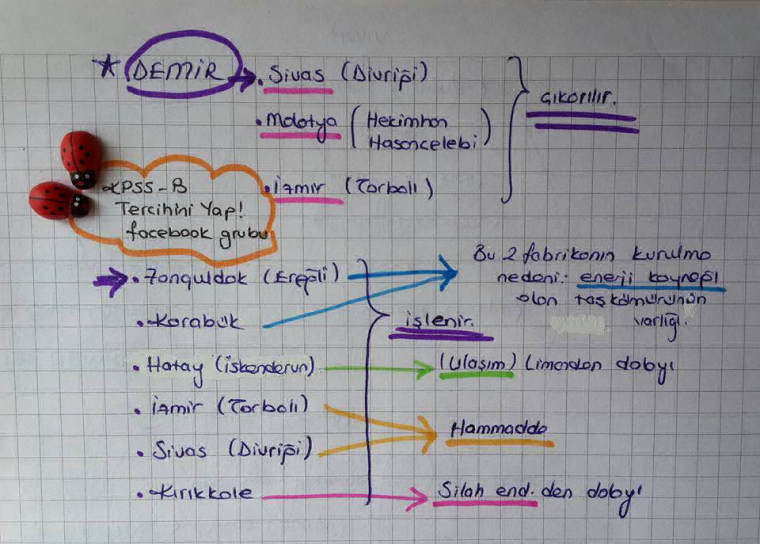 * DEMİR → • Sivas (Divriği)
• Malatya (Hekimhan
Hasançelebi)
çıkarılır.
• İzmir (Torbalı)
KPSS-B
Tercihini Yap!
facebook grubu
• Zonguldak (Ereğli)
• Karabük
Bu 2 fabrikanın kurulma
nedeni: enerji kaynağı
olan taşkömürünün
varlığı.
işlenir.
• Hatay (İskenderun) → (Ulaşım) Limandan dolayı
• İzmir (Torbalı)
• Sivas (Divriği)
Hammadde
• Kırıkkale → Silah end. den dolayı